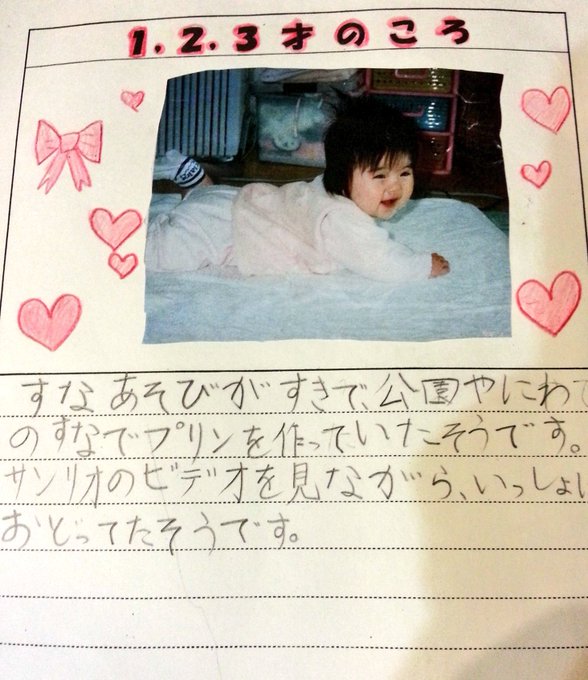 1.2.3才のころ
すなあそびがすきで、公園やにわ
のすなでプリンを作っていたそうです。
サンリオのビデオを見ながら、いっしょ
おどってたそうです。